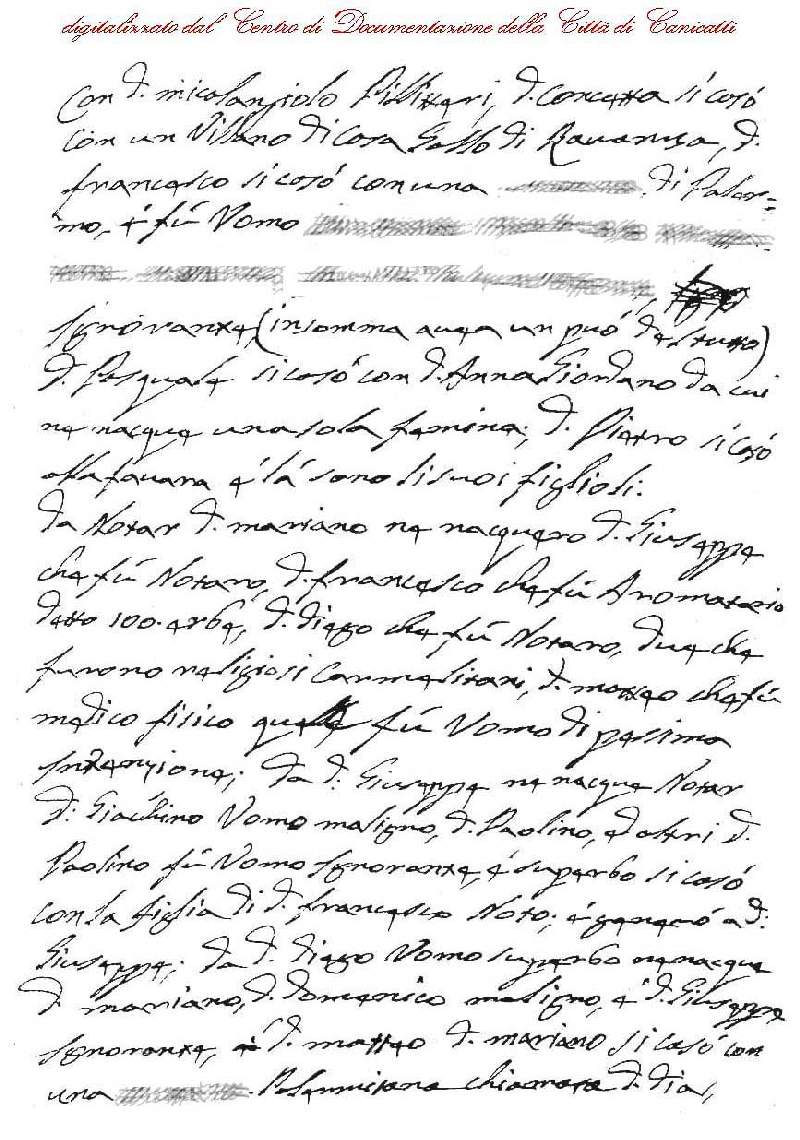 digitalizzato dal Centro di Documentazione della Città di Canicattì
Con d. micolangiolo Pillitteri, d. concetta si casó
con un Villano di Casa Gallo di Ravanusa, d.
francesco si casó con una di Paler=
mo, é fú Vomo
Ignorante, (insomma avea un puó del tutto)
d. Pasquale si casó con d. Anna Giordano da cui
ne nacque una sola femina; d. Pietro si casó
alla favara é lá sono li suoi figlioli.
da Notar d. mariano ne nacquero d. Giuseppe
che fú Notaro, d. francesco che fú Aromatario
detto 100. erbe, d. diego che fú Notaro, due che
furono religiosi Carmelitani, d. matteo che fú
medico fisico quale fú Vomo di pessima
Intenzione; da d. Giuseppe ne nacque Notar
d. Giachino Vomo maligno, d. Paolino, ed altri d.
Paolino fú Vomo Ignorante, é superbo si casó
con la figlia di d. francesco Noto; é generó a d:
Giuseppe; da d. diego Vomo superbo ne nacque
d. mariano, d. domenico maligno, é d. Giuseppe
Ignorante, é d. matteo d. mariano si casó con
una Palermitana chiamata d. dia,